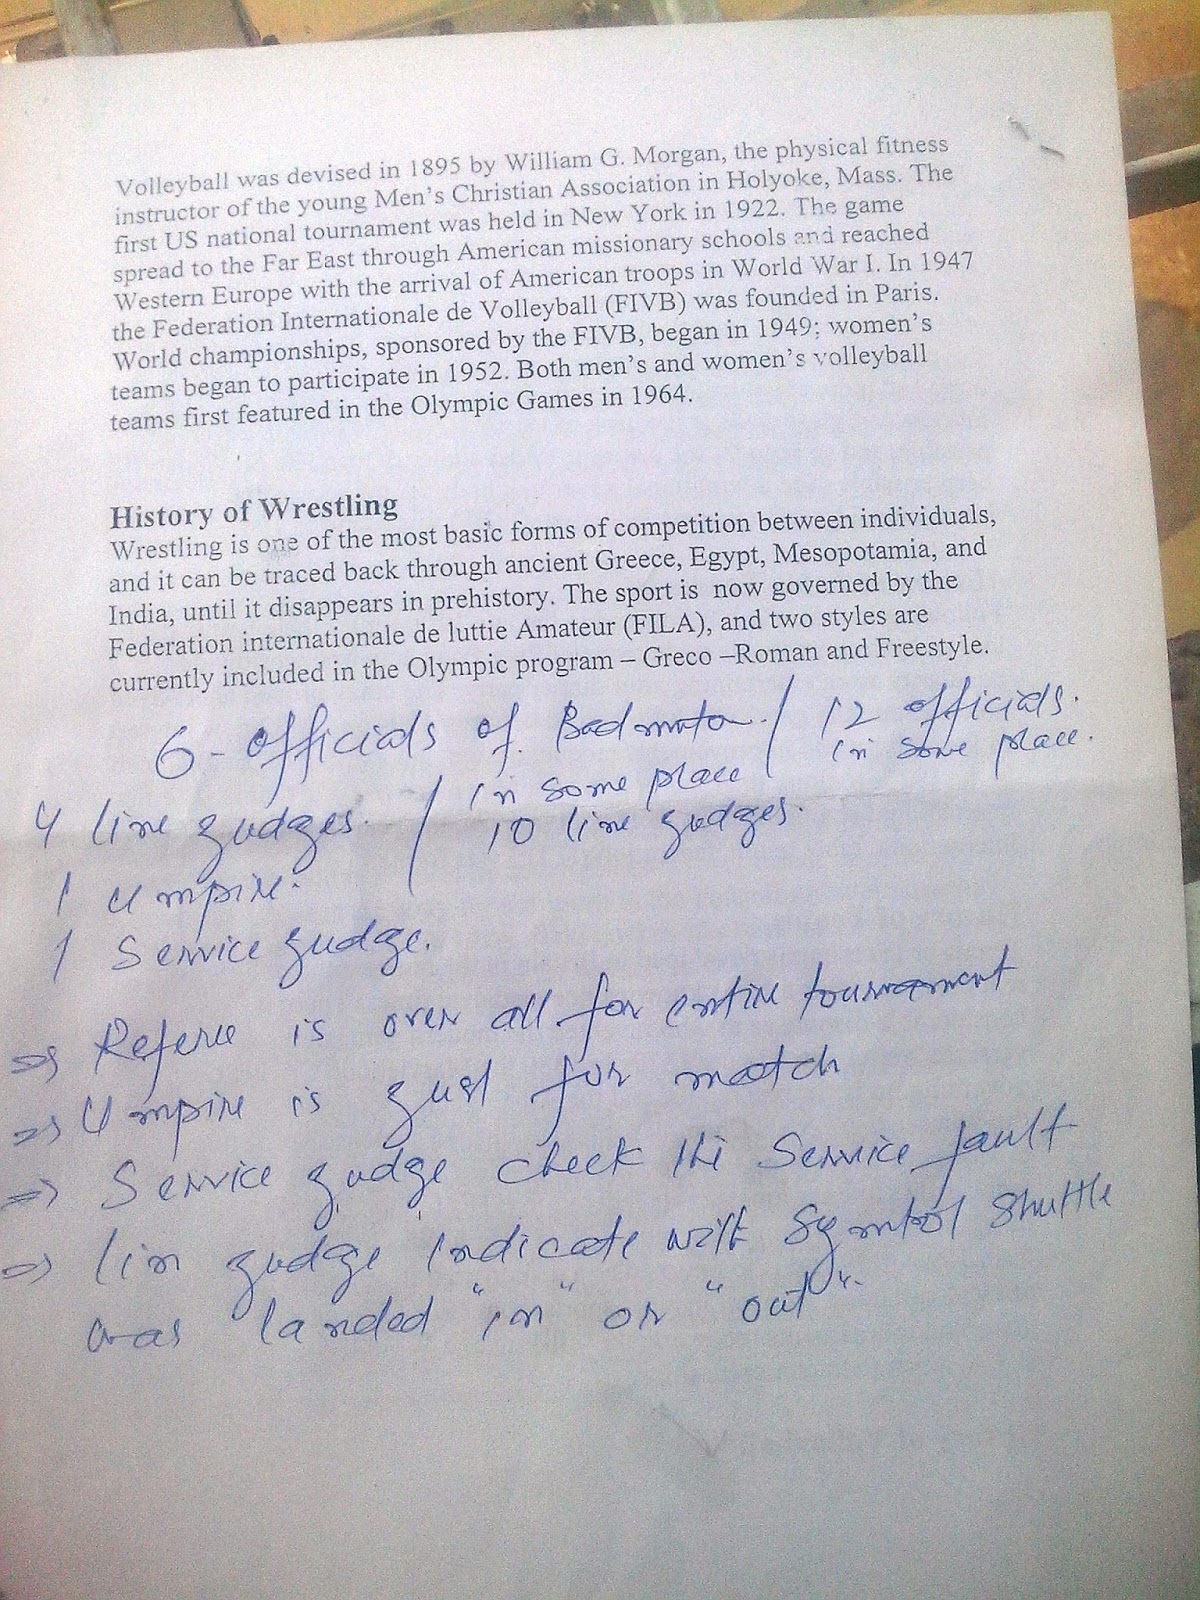 Volleyball was devised in 1895 by William G. Morgan, the physical fitness
instructor of the young Men's Christian Association in Holyoke, Mass. The
first US national tournament was held in New York in 1922. The game
spread to the Far East through American missionary schools and reached
Western Europe with the arrival of American troops in World War I. In 1947
the Federation Internationale de Volleyball (FIVB) was founded in Paris.
World championships, sponsored by the FIVB, began in 1949; women's
teams began to participate in 1952. Both men's and women's volleyball
teams first featured in the Olympic Games in 1964.
History of Wrestling
Wrestling is one of the most basic forms of competition between individuals,
and it can be traced back through ancient Greece, Egypt, Mesopotamia, and
India, until it disappears in prehistory. The sport is now governed by the
Federation internationale de luttie Amateur (FILA), and two styles are
currently included in the Olympic program – Greco –Roman and Freestyle.
6- officials of Badminton. / 12 officials.
in some place.
4 line gudges. / in some place
10 line gudges.
1 Umpire.
1 Service gudge.
⇒ Referee is over all for entire tournament
⇒ Umpire is gust for match
⇒ Service gudge check the Service fault
⇒ lin gudge indicate with Symbol Shuttle
was landed "in" or "out".